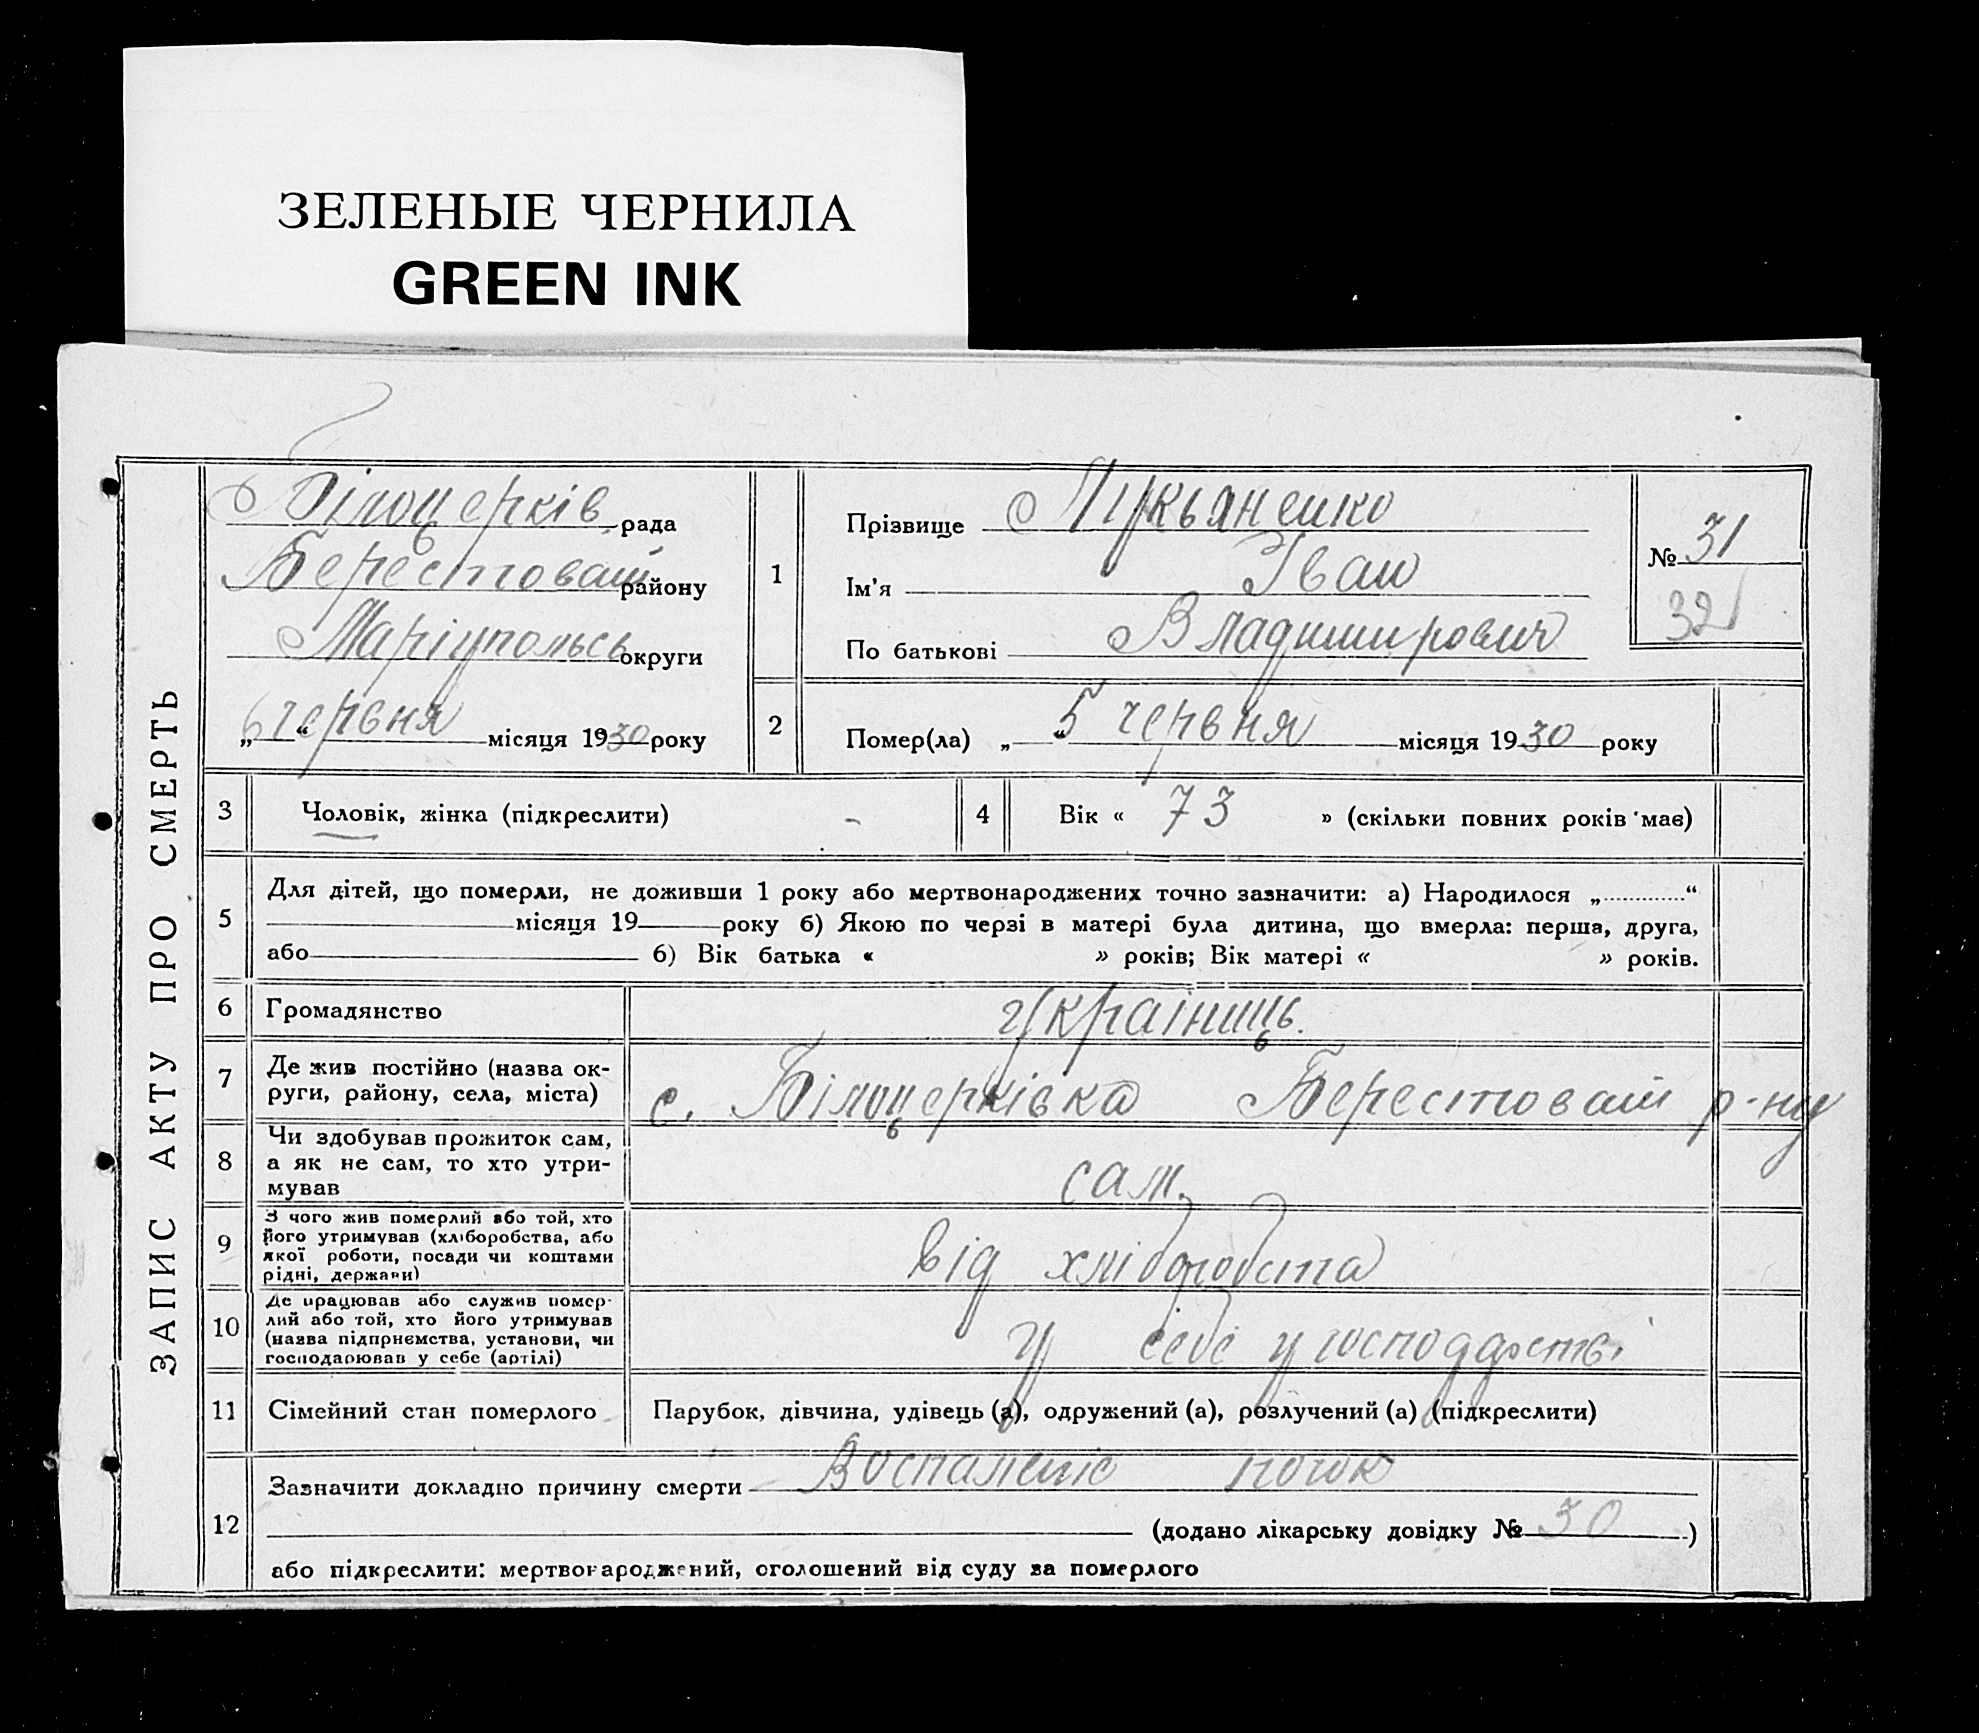 ЗЕЛЕНЫЕ ЧЕРНИЛА
GREEN INK
ЗАПИС АКТУ ПРО СМЕРТЬ
Білоцерків рада
Берестоваш району
Маріупольсь округи
„6“ червня місяця 1930 року
1
Прізвище Лукьяненко
Ім'я Іван
По батькові Владимирович
№ 31
321
2
Помер(ла) „5“ червня місяця 1930 року
3
Чоловік, жінка (підкреслити)
4
Вік « 73 » (скільки повних років має)
5
Для дітей, що померли, не доживши 1 року або мертвонароджених точно зазначити: а) Народилося „.............“
місяця 19 року б) Якою по черзі в матері була дитина, що вмерла: перша, друга,
або б) Вік батька « » років; Вік матері « » років.
6
Громадянство
Україниць.
7
Де жив постійно (назва ок-
руги, району, села, міста)
с. Білоцерківка Берестоваш р-ну
8
Чи здобував прожиток сам,
а як не сам, то хто утри-
мував
сам.
9
З чого жив померлий або той, хто
його утримував (хліборобства, або
якої роботи, посади чи коштами
рідні, держави)
від хліборобста
10
Де працював або служив помер-
лий або той, хто його утримував
(назва підприємства, установи, чи
господарював у себе (артілі)
У себе у господарстві
11
Сімейний стан померлого
Парубок, дівчина, удівець (а), одружений (а), розлучений (а) (підкреслити)
12
Зазначити докладно причину смерти Воспаленіє почок
(додано лікарську довідку № 30)
або підкреслити: мертвонароджений, оголошений від суду за померлого